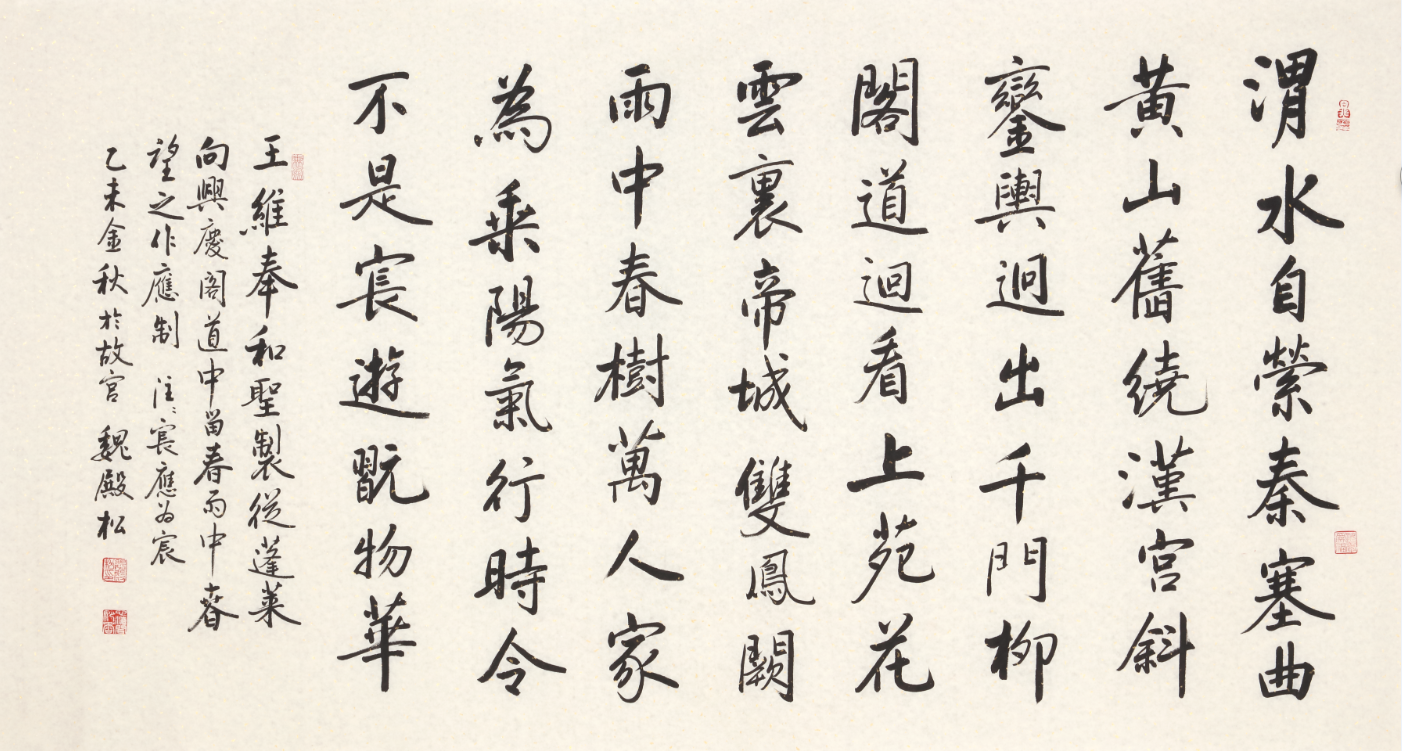 渭水自縈秦塞曲
黃山舊繞漢宮斜
鑾輿迥出千門柳
閣道迴看上苑花
雲裏帝城雙鳳闕
雨中春樹萬人家
為乘陽氣行時令
不是宸遊翫物華
王維奉和聖製從蓬萊
向興慶閣道中留春雨中春
望之作應制 注：宸應為宸
乙未金秋於故宮 魏殿松